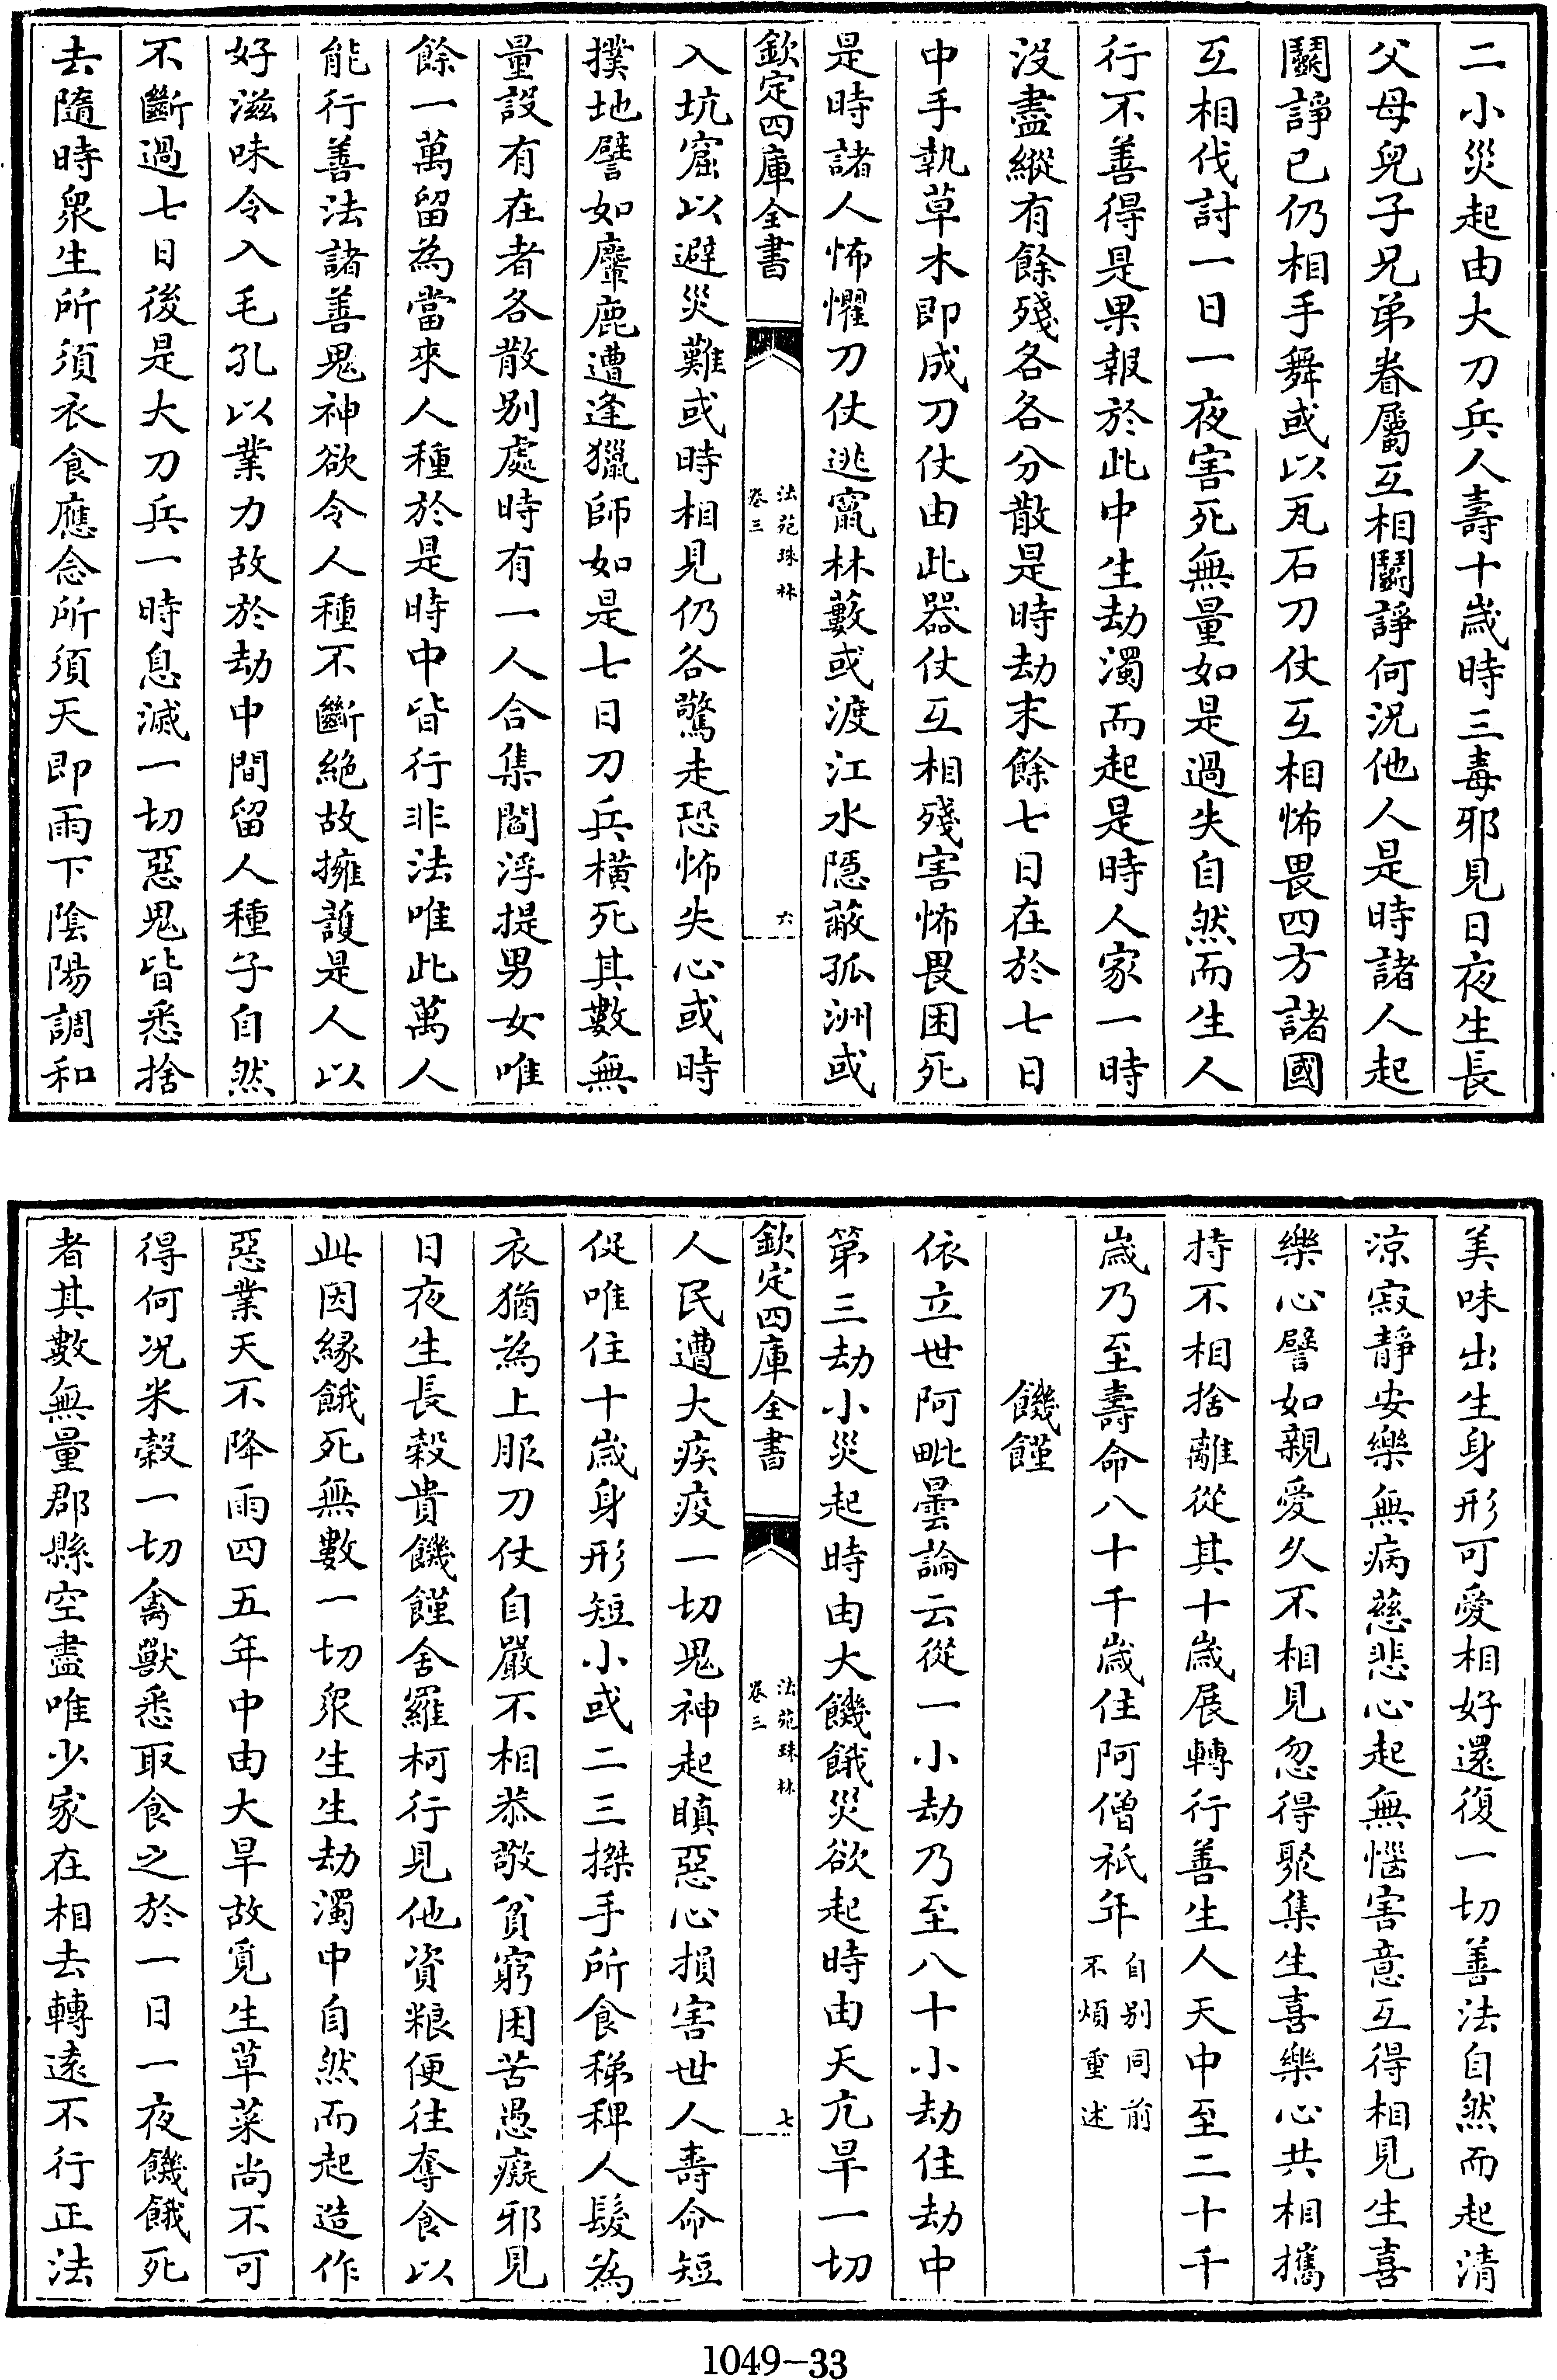 二小災起由大刀兵人壽十歲時三毒邪見日夜生長
父母兒子兄弟眷屬互相鬭諍何況他人是時諸人起
鬭諍已仍相手舞或以瓦石刀仗互相怖畏四方諸國
互相伐討一日一夜害死無量如是過失自然而生人
行不善得是果報於此中生劫濁而起是時人家一時
沒盡縱有餘殘各各分散是時劫末餘七日在於七日
中手執草木即成刀仗由此器仗互相殘害怖畏困死
是時諸人怖懼刀仗逃竄林藪或渡江水隠蔽孤洲或
欽定四庫全書
法苑珠林
卷三
六
入坑窟以避災難或時相見仍各驚走恐怖失心或時
撲地譬如麞鹿遭逢獵師如是七日刀兵橫死其數無
量設有在者各散别處時有一人合集閻浮提男女唯
餘一萬留為當來人種於是時中皆行非法唯此萬人
能行善法諸善鬼神欲令人種不斷絶故擁護是人以
好滋味令入毛孔以業力故於劫中間留人種子自然
不斷過七日後是大刀兵一時息滅一切惡鬼皆悉捨
去隨時衆生所須衣食應念所須天即雨下陰陽調和
美味出生身形可愛相好還復一切善法自然而起清
涼寂靜安樂無病慈悲心起無惱害意互得相見生喜
樂心譬如親愛久不相見忽得聚集生喜樂心共相攜
持不相捨離從其十歲展轉行善生人天中至二十千
歲乃至壽命八十千歲住阿僧祇年自别同前
不煩重述
饑饉
依立世阿毗曇論云從一小劫乃至八十小劫住劫中
第三劫小災起時由大饑餓災欲起時由天亢旱一切
欽定四庫全書
法苑珠林
卷三
七
人民遭大疾疫一切鬼神起瞋惡心損害世人壽命短
促唯住十歲身形短小或二三搩手所食稊稗人髮為
衣猶為上服刀仗自嚴不相恭敬貧窮困苦愚癡邪見
日夜生長穀貴饑饉舍羅柯行見他資粮便往奪食以
此因緣餓死無數一切衆生生劫濁中自然而起造作
惡業天不降雨四五年中由大旱故覓生草菜尚不可
得何况米穀一切禽獸悉取食之於一日一夜饑餓死
者其數無量郡縣空盡唯少家在相去轉遠不行正法
1049-33